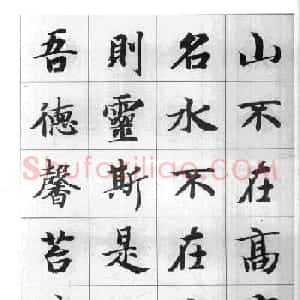 山不在高
名水不在
則靈斯是
吾德馨苔
Shufaziliao.com